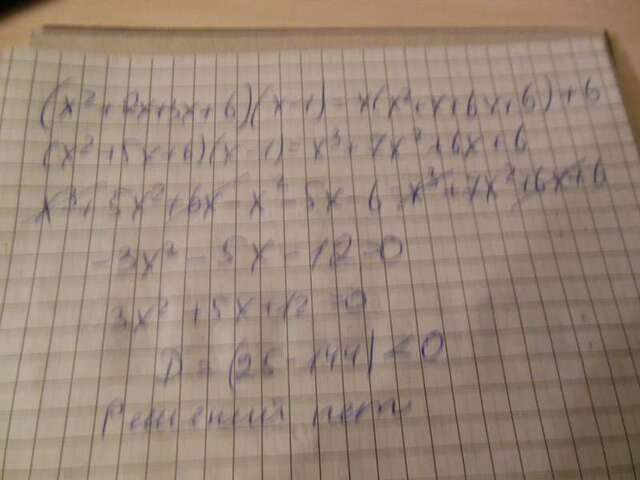 (x²+2x+3x+6)(x-1)=x(x²+x+6x+6)+6
(x²+5x+6)(x-1)=x³+7x²+6x+6
x³+5x²+6x-x²-5x-6=x³+7x²+6x+6
-3x²-5x-12=0
3x²+5x+12=0
D=(25-144)<0
Решений нет